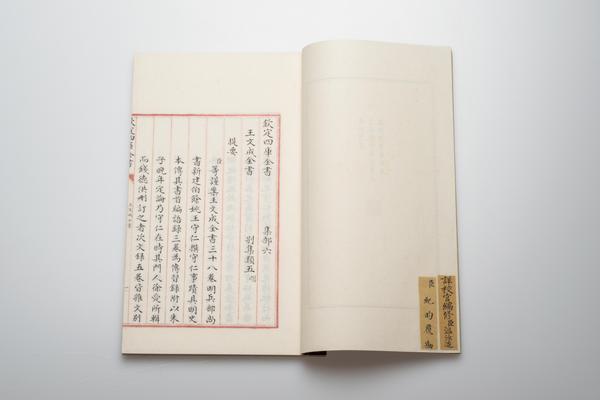 詳校官編修臣温汝适
臣紀昀覆勘
欽定四庫全書 集部六
王文成全書 别集類五 明
提要
臣等謹案王文成全書三十八卷明兵部尚
書新建伯餘姚王守仁撰守仁事蹟具明史
本傳其書首編語録三卷為傳習録附以朱
子晚年定論乃守仁在時其門人徐愛所輯
而錢德洪刪訂之者次文録五卷皆雜文别
欽定四庫全書